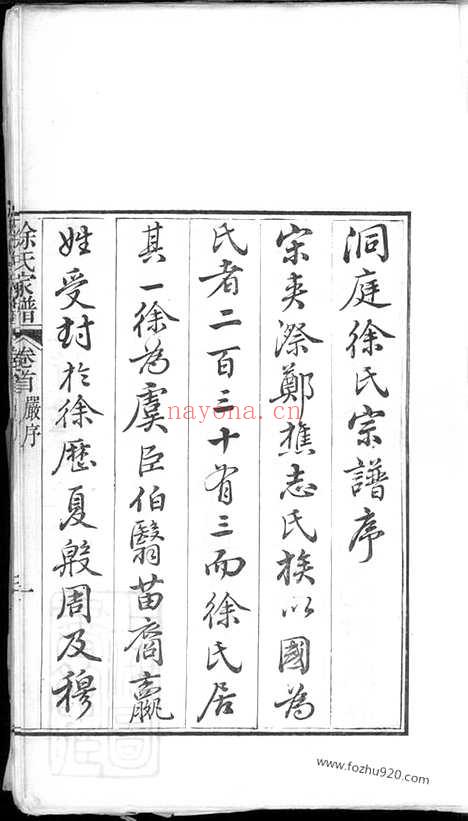 洞庭徐氏宗譜序
宋夾漈鄭樵志氏族以國為
氏者二百三十有三而徐氏居
其一徐為虞臣伯翳苗裔嬴
姓受封於徐歷夏殷周及穆
徐氏家譜 卷首 嚴序 一
nayona.cn
www.fozhu920.com